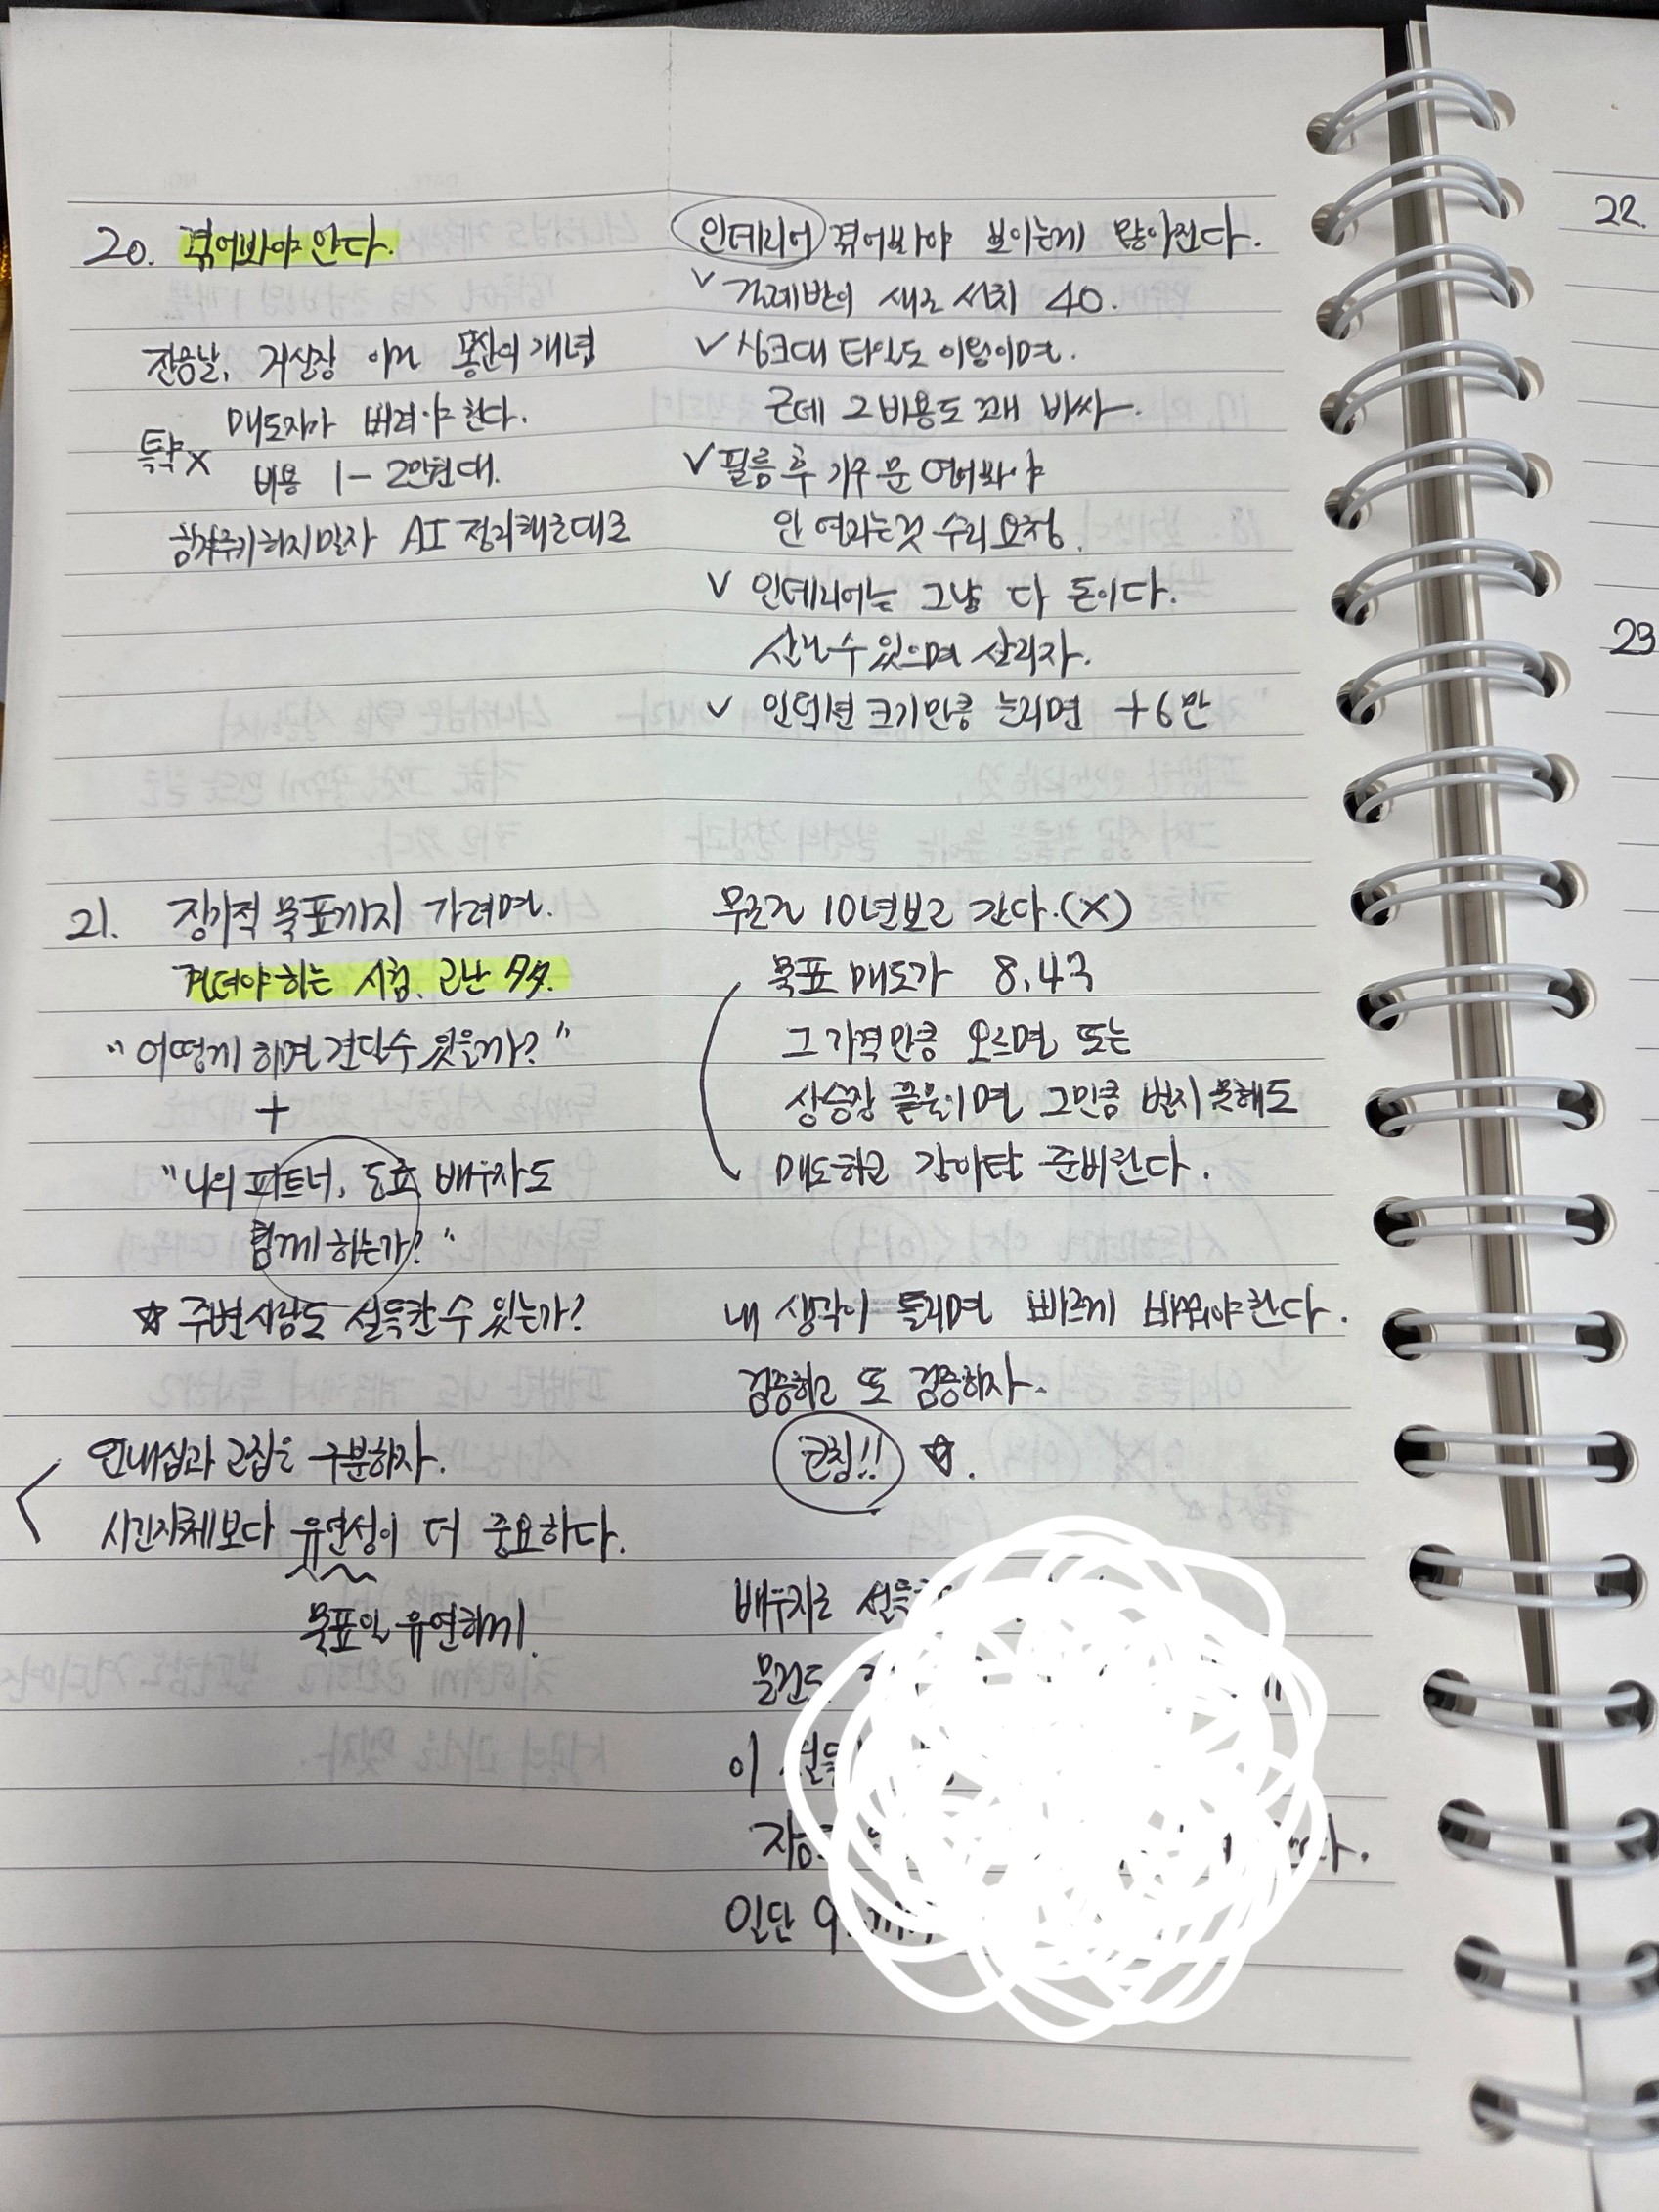 20. 겪어봐야 안다.
전응날, 거실장 이건 몽산의 개념
매도자가 버려야 한다.
특약 X
비용 1-2만원대.
하지말자 AI 정리해준대로
인테리어 겪어봐야 보이는게 많아진다.
✓ 걸레받이 새로 설치 40.
✓ 싱크대 타일도 이왕이면.
근데 그 비용도 꽤 비싸.
✓ 필름 후 가구 문 열어봐야
안 열리는것 수리 요청.
✓ 인테리어는 그냥 다 돈이다.
살릴수 있으면 살리자.
✓ 인덕션 크기만큼 늘리면 +6만
21. 장기적 목표까지 가려면.
견뎌야 하는 시험, 고난 多多.
"어떻게 하면 견딜수 있을까?"
+
"나의 파트너, 동료, 배우자도
함께 하는가?"
☆ 주변사람도 설득할 수 있는가?
인내심과 고집을 구분하자.
시간자체보다 유연성이 더 중요하다.
목표은 유연하게.
무조건 10년보고 간다.(X)
목표 매도가 8.4억
그 가격만큼 오르면 또는
상승장 끝물이면 그만큼 벌지 못해도
매도하고 갈아탈 준비한다.
내 생각이 틀리면 빠르게 바꿔야한다.
검증하고 또 검증하자.
고침!! ☆.
배우자로
물건도
이
일단
22.
23